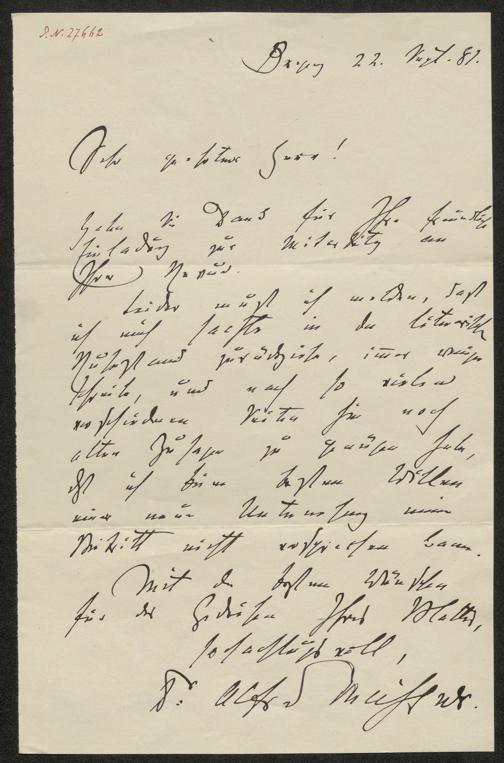 I.N. 27662
22. Sept. 81.
Sehr geehrter Herr!
Haben Sie Dank für Ihre freundliche
Einladung zur Mitarbeit an
Ihrer Revue.
Leider muß ich melden, daß
ich mich sachte in den literarischen
Ruhestand zurückziehe, immer weniger
schreibe, und nach so vielen
verschiedenen Seiten hin noch
alten Zusagen zu genügen habe,
daß ich beim besten Willen
einer neuen Unternehmung meinen
Beitritt nicht versprechen kann.
Mit den besten Wünschen
für das Gedeihen Ihres Blattes,
hochachtungsvoll,
Dr. Alfred Meißner.